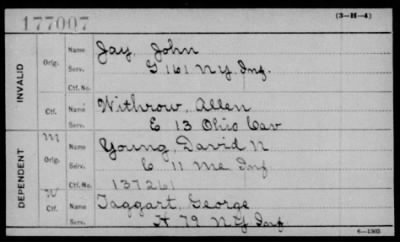 177007 (3-H-4)
INVALID
Orig. Name Jay, John
Serv. G 161 NY Inf.
Ctf. No.
Ctf. Name Withrow, Allen
Serv. E 13 Ohio Cav
DEPENDENT
M Orig. Name Young, David N
Serv. C 11 Me Inf
Ctf. No. 137261
W Ctf. Name Taggart, George
Serv. H 79 NY Inf.